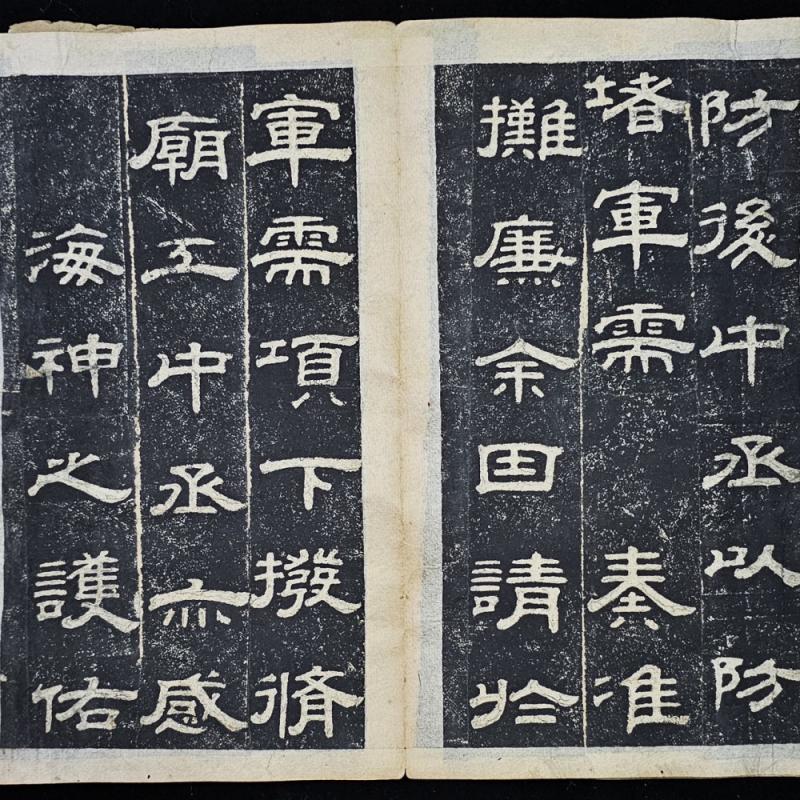 防後中丞以防
堵軍需奏准
攤廉余田請於
軍需項下撥脩
廟工中丞亦感
海神之護佑